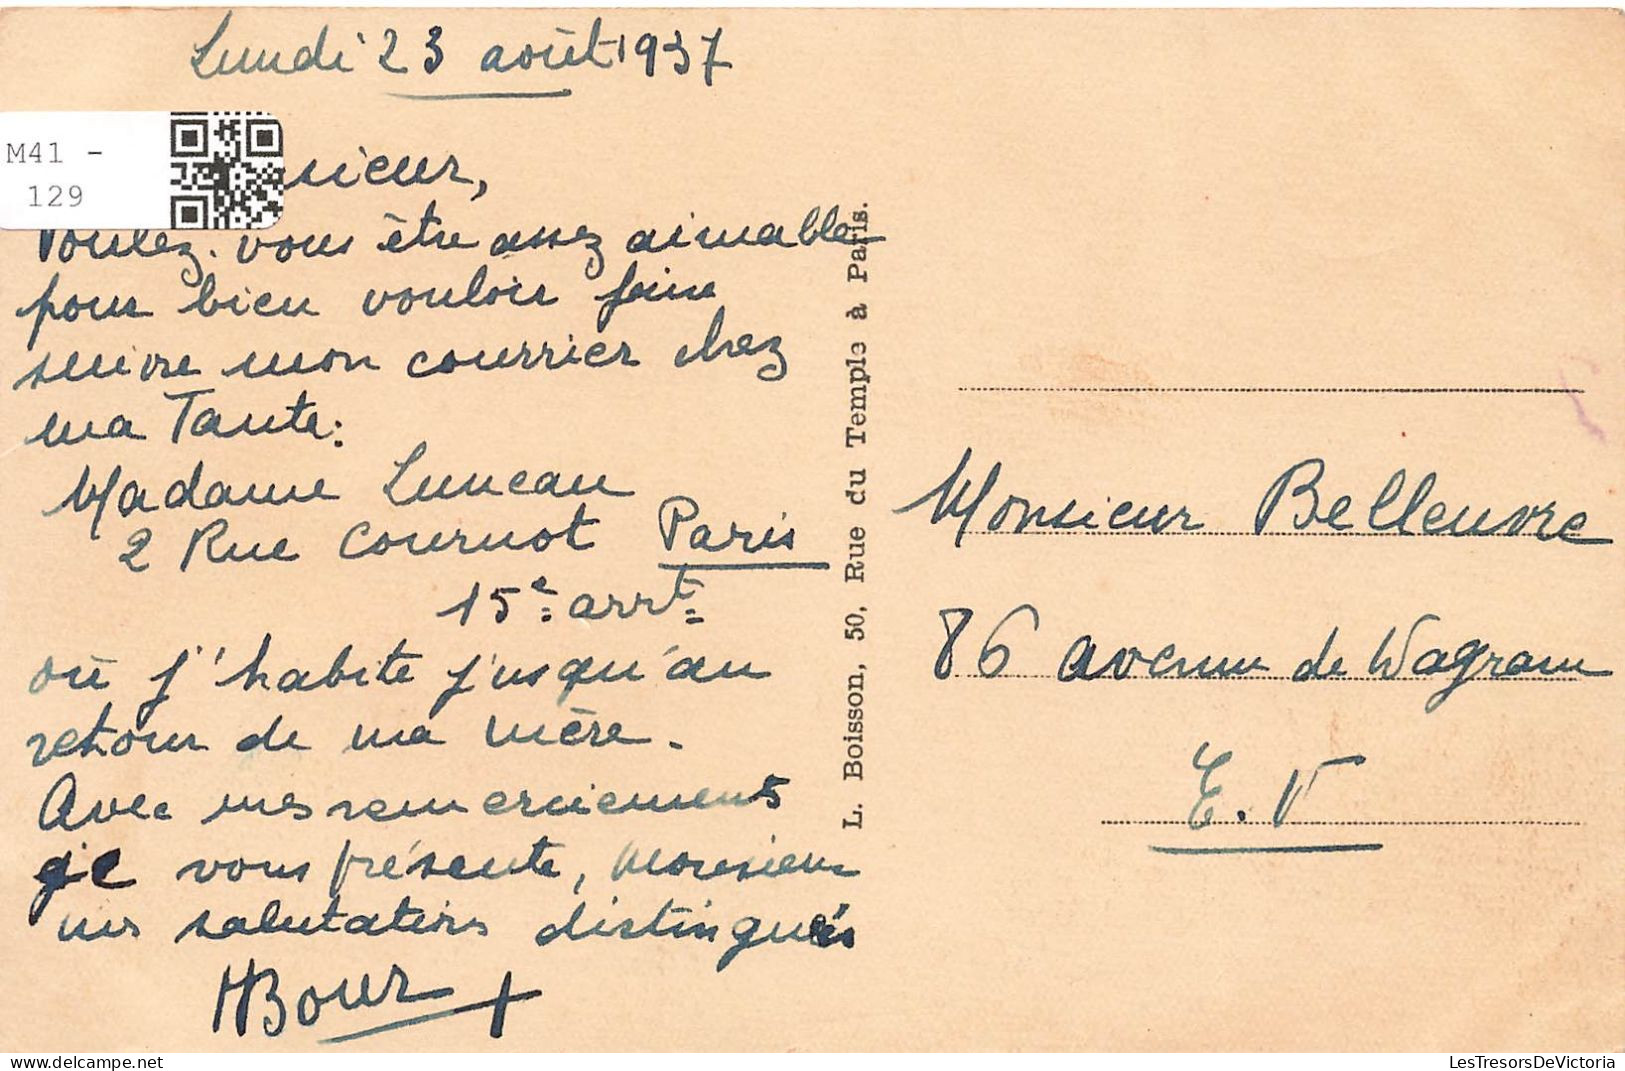 Lundi 23 août 1937
M41 -
129
sieur,
Voulez-vous être assez aimable
pour bien vouloir faire
suivre mon courrier chez
ma Tante:
Madame Luneau
2 Rue Cournot Paris
15e arrt
où j'habite jusqu'au
retour de ma mère.
Avec mes remerciements
je vous présente, Monsieur
mes salutations distinguées
HBour
L. Boisson, 50, Rue du Temple à Paris.
Monsieur Belleuvre
86 avenue de Wagram
E.V
LesTresorsDeVictoria